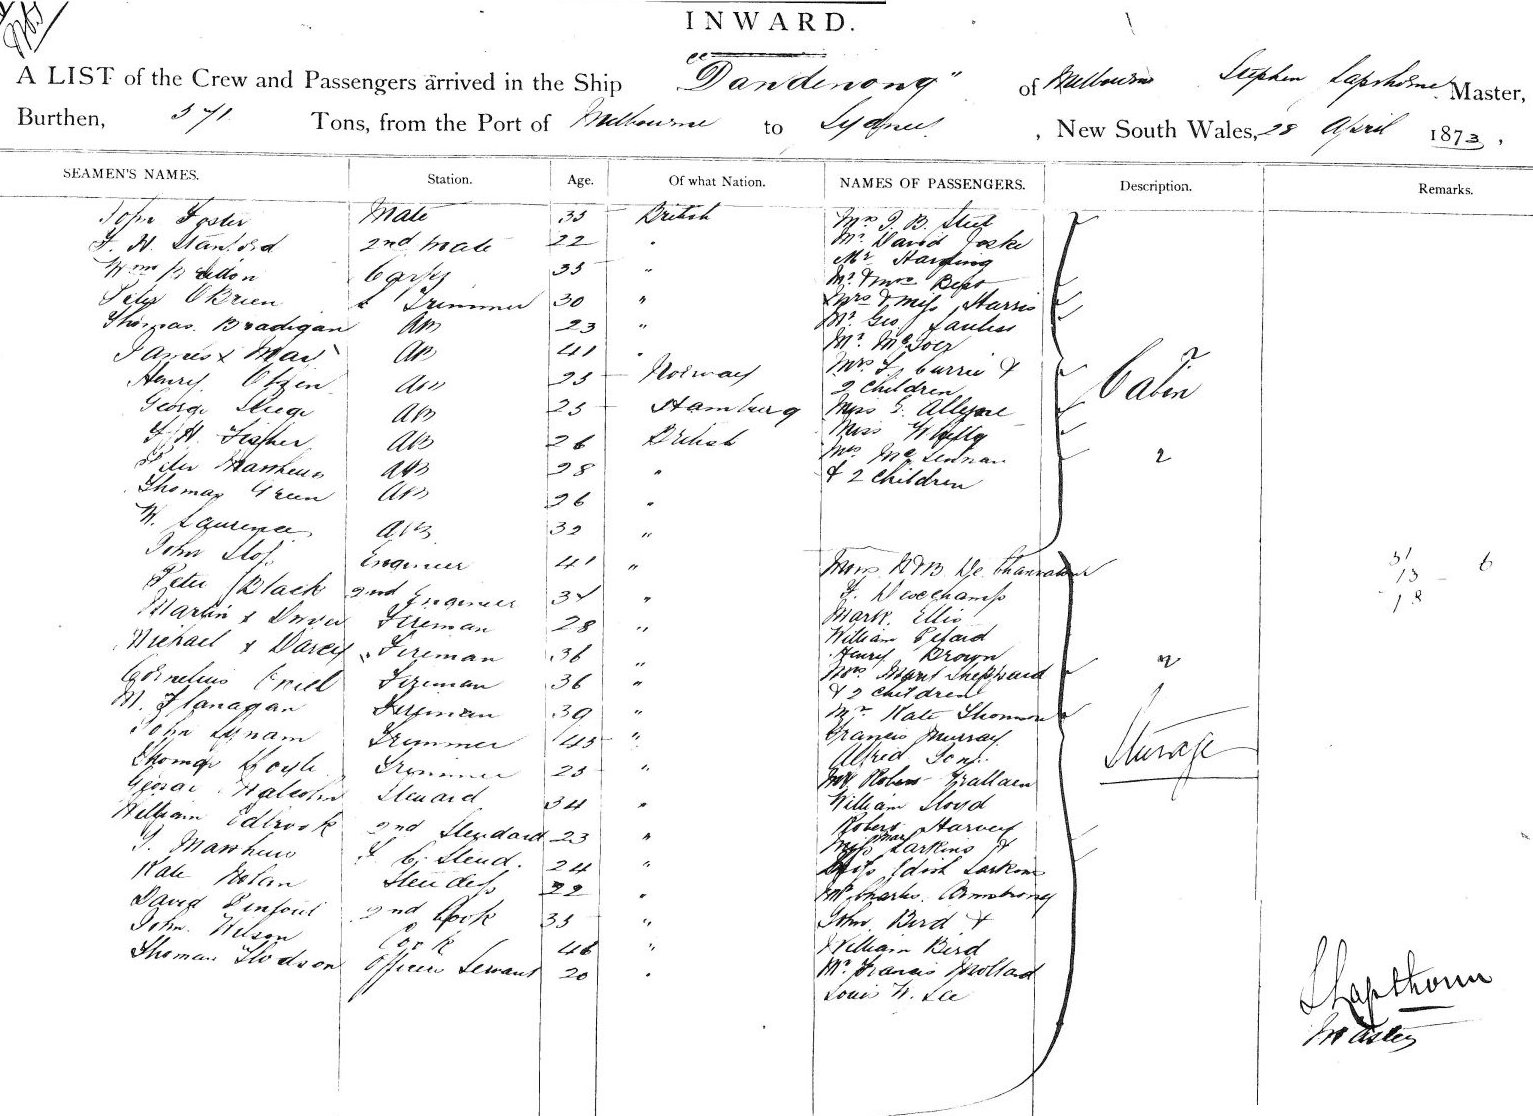 INWARD.
A LIST of the Crew and Passengers arrived in the Ship "Dandenong" of Melbourne Stephen Lapthorne Master,
Burthen, 571 Tons, from the Port of Melbourne to Sydney, New South Wales, 28 April 1873,
SEAMEN'S NAMES. Station. Age. Of what Nation. NAMES OF PASSENGERS. Description. Remarks.
John Foster Mate 35 British Mr J. B. Steel
F. H. Stanford 2nd Mate 22 " Mr David Joske
Wm Carps 35 " Mr Harding
Mr & Mrs Best
Peter O'Brien Trimmer 30 " Mrs & Miss Harris
Thomas Bradigan AB 23 " Mr Geo
James x May AB 41 " Mr McIvor
Henry Otzen AB 25 Norway Mrs J. Currie &
2 children
George AB 25 Hamburg Miss E. Alleyne
Cabin
F. H. Fisher AB 26 British Miss
Peter Matthews AB 28 " Mrs McLennan
Thomas Green AB 26 " & 2 children
W. Laurence AB 32 "
John Engineer 41 " Mess.
Peter Black 2nd Engineer 34 " F. Deschamps
Martin x Fireman 28 " Mark Ellis
William
Michael x Darcy Fireman 36 " Henry Brown
Cornelius Fireman 36 " Mrs Margt Sheppard
& 2 children
M. Flanagan Fireman 39 " Kate
John Lynam Trimmer 45 " Francis Murray
Alfred
Thomas Trimmer 25 " Mr Robert
Steerage
George Malcolm Steward 34 " William Lloyd
William Edbrook 2nd Steward 23 " Robert Harvey
Miss Mary Larkins &
J. Matthews F. C. Steud. 24 " Miss Edith Larkins
Kate Nolan Steudess 22 " Mr Charles Armstrong
David 2nd Cook 35 " John Bird &
John Wilson Cook 46 " William Bird
Thomas Hodson Officers Servant 20 " Mr Francis Mollard
Louis W. Lee
51
13 - 6
18
S Lapthorne
Master